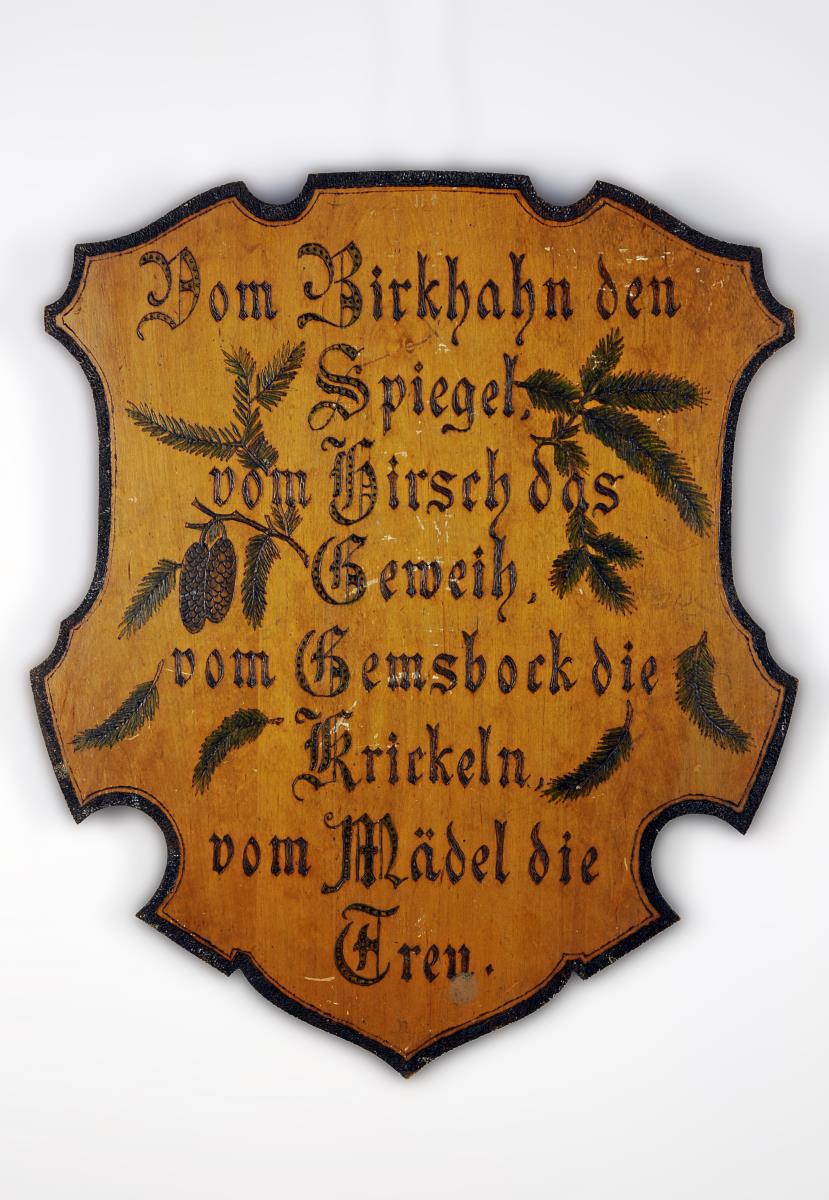 Vom Birkhahn den
Spiegel,
vom Hirsch das
Geweih,
vom Gemsbock die
Krickeln,
vom Mädel die
Treu.